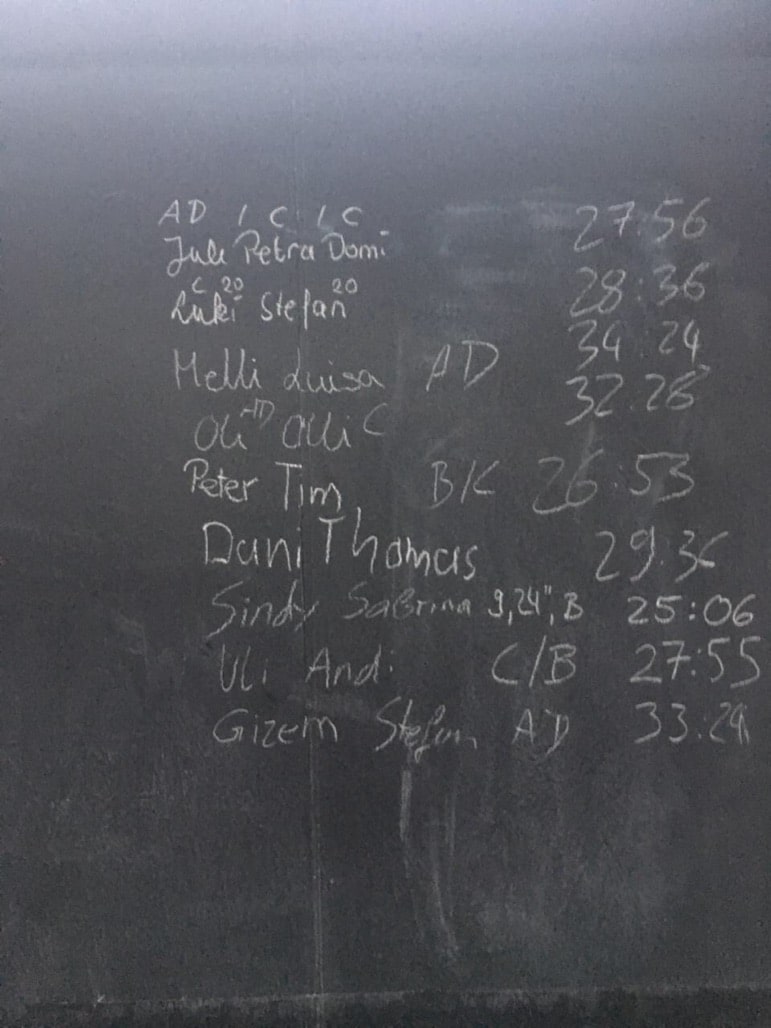 AD / C / C
Juli Petra Domi 27:56
C 20 20
Luki Stefan 28:36
Melli Luisa AD 34 24
Oli AD Olli C 32.26
Peter Tim BK 26:53
Dani Thomas 29.36
Sindy Saßrina 9,24", B 25:06
Uli Andi C/B 27:55
Gizem Stefan AD 33:24